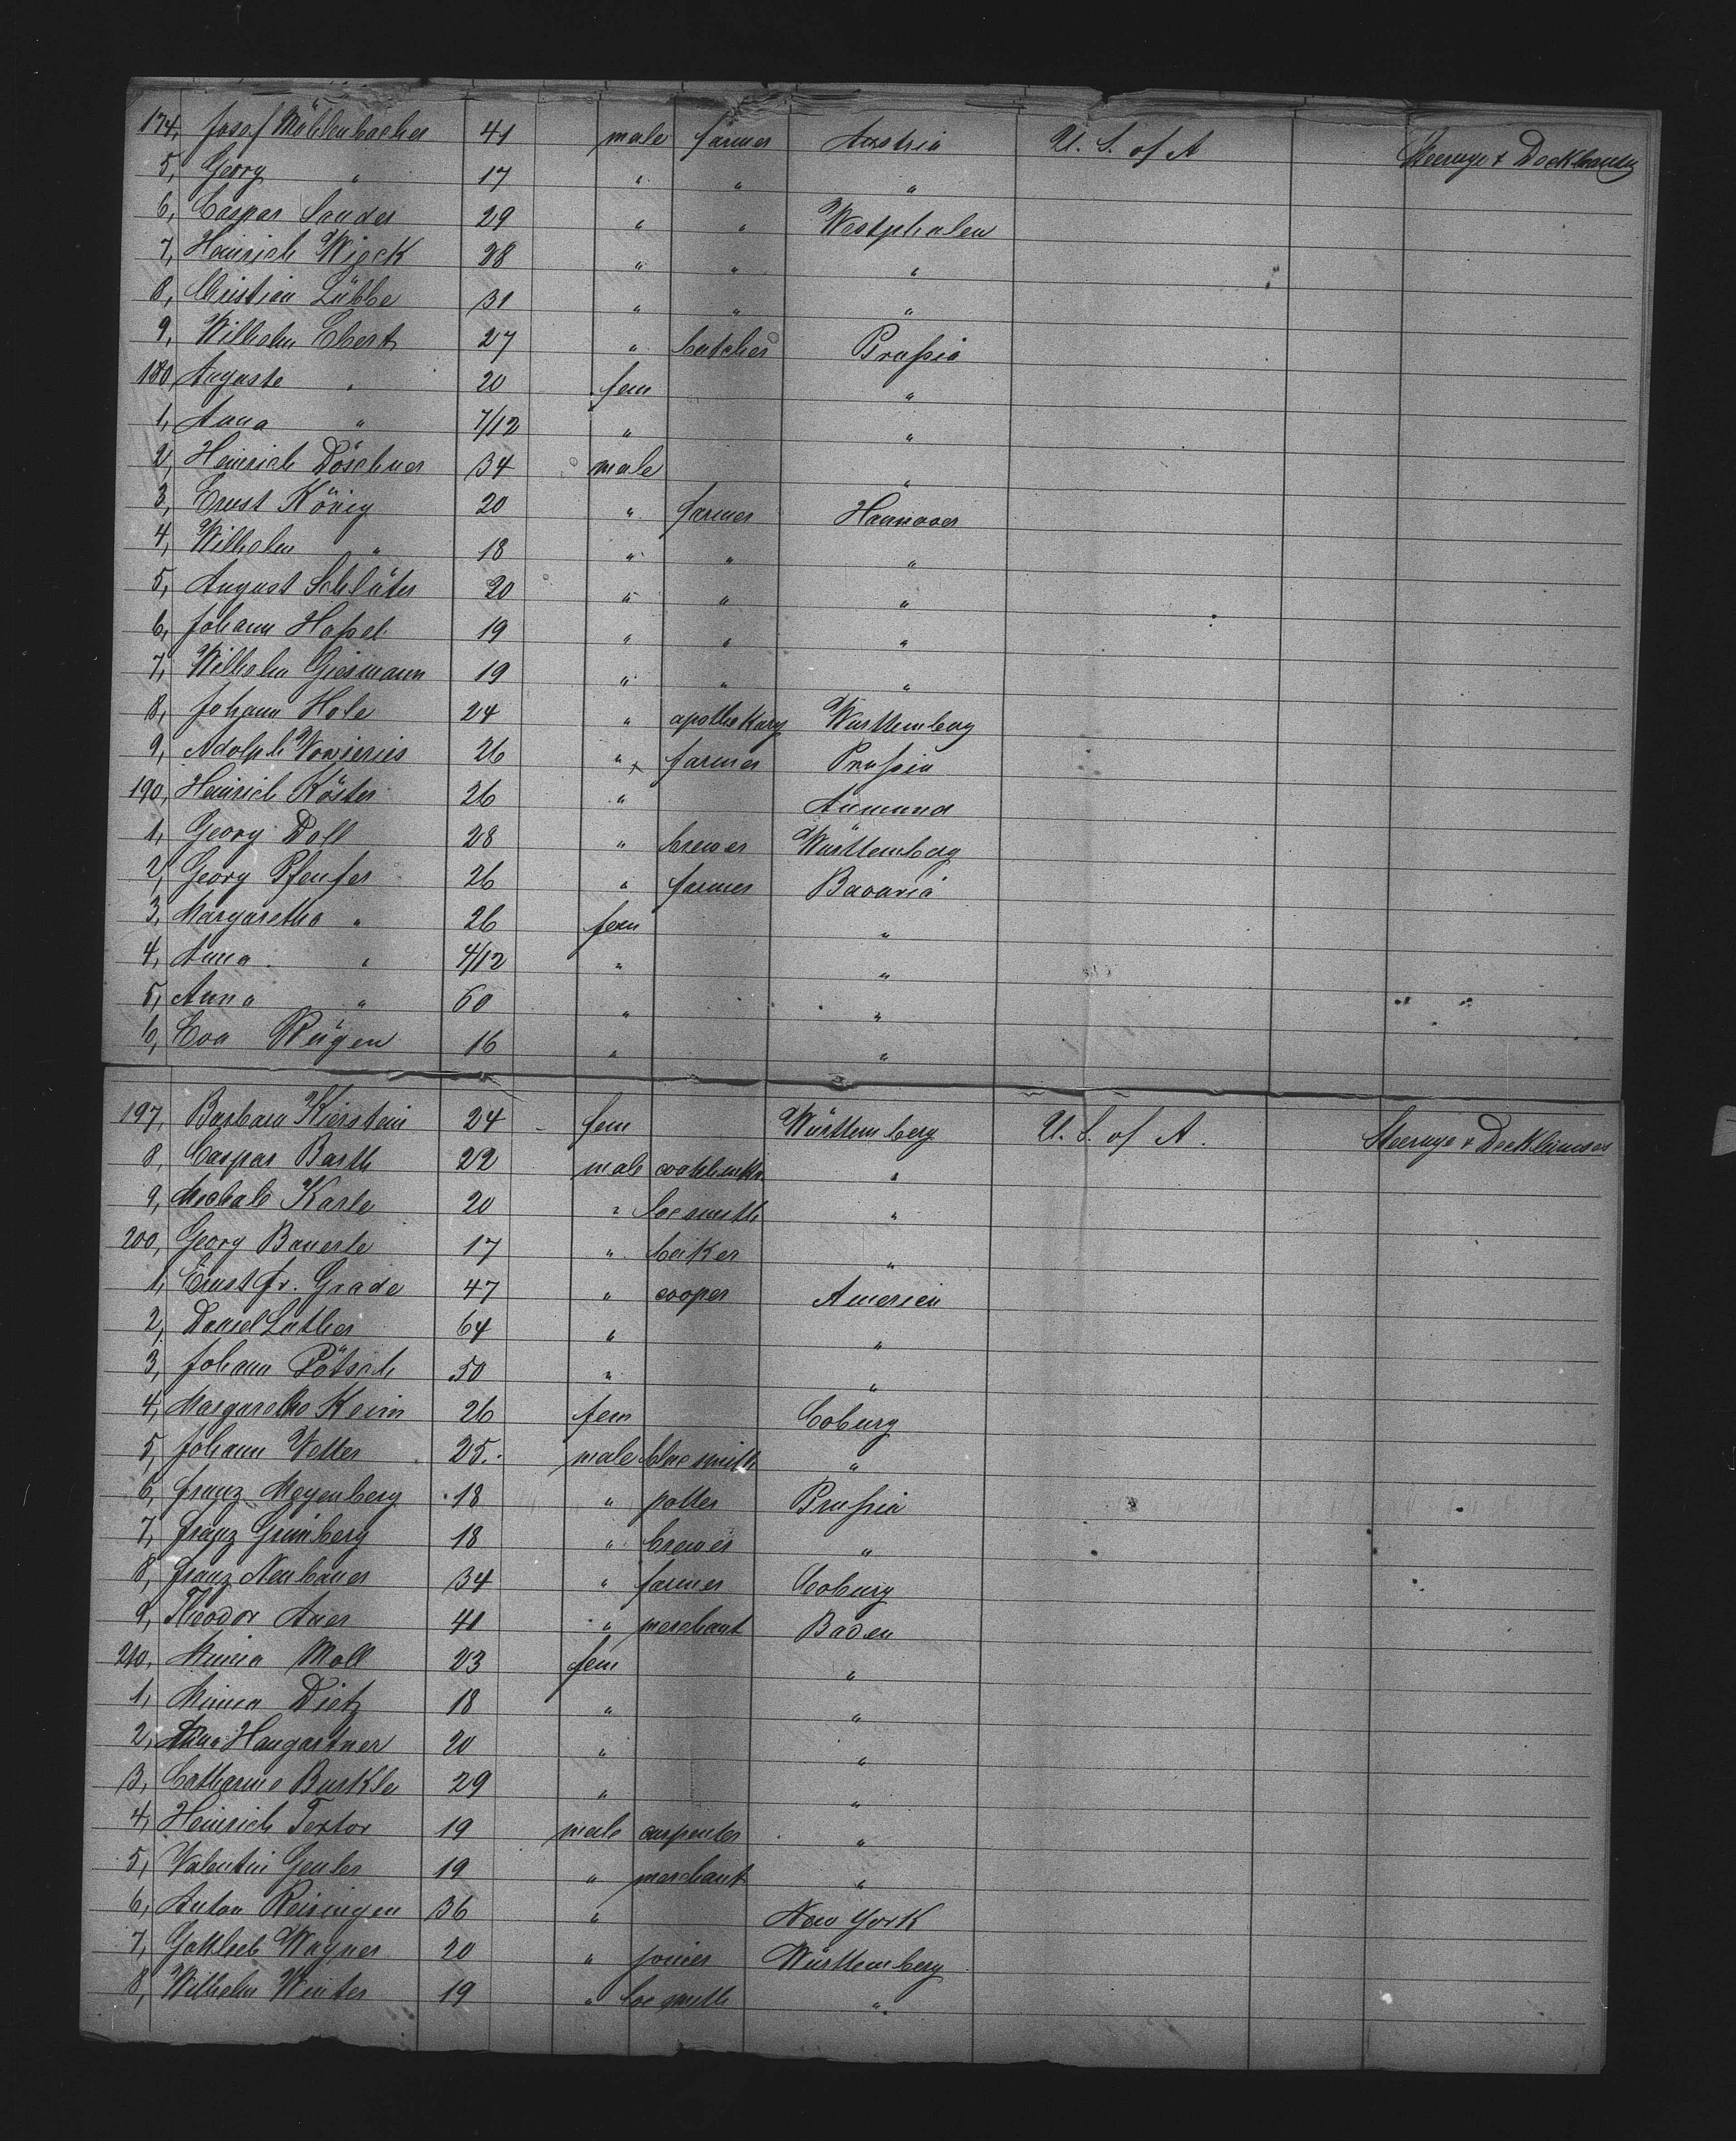 174, Josef Möhlenbacher 41 male farmer Austria U. S. of A Steerage & Deckhouse
5, Georg " 17 " " "
6, Caspar Sander 29 " " Westphalen
7, Heinrich Wieck 28 " " "
8, Christian Lübbe 31 " " "
9, Wilhelm Ebert 27 " butcher Prußia
180, Auguste " 20 fem "
1, Anna " 7/12 " "
2, Heinrich Döschner 34 male "
3, Ernst König 20 " farmer Hannover
4, Wilhelm " 18 " " "
5, August Schlüter 20 " " "
6, Johann Haßel 19 " " "
7, Wilhelm Giesmann 19 " " "
8, Johann Hole 24 " apothekary Württemberg
9, Adolph 26 " farmer Prußia
190, Heinrich Köster 26 " Aumund
1, Georg Doll 28 " brewer Württemberg
2, Georg Pfenfer 26 " farmer Bavaria
3, Margaretha " 26 fem "
4, Anna " 4/12 " "
5, Anna " 60 " " " "
6, Eva 16 " "
197, Barbara Kierstein 24 fem Württemberg U. S. of A. Steerage & Deckhouse
8, Caspar Barth 22 male "
9, Karle 20 " locsmith "
200, Georg Bauerle 17 " baker "
1, Ernst Fr. Grade 47 " cooper America
2, Daniel Luther 64 " "
3, Johann Pötsch 50 " "
4, Margaretha Keim 26 fem Coburg
5, Johann Vetter 25 male "
6, Franz Meyenberg 18 " potter Prußia
7, Franz Grünberg 18 " brewer "
8, Franz Neubauer 34 " farmer Coburg
9, Theodor Auer 41 " merchant Baden
210, Minna Moll 23 fem "
1, Minna Dietz 18 " "
2, Anna Haugartner 20 " "
3, Catharina Burkle 29 " "
4, Heinrich Textor 19 male carpenter "
5, Valentin 19 " merchant "
6, Anton Reisingen 36 " New York
7, Gottlieb Wagner 20 " joiner Württemberg
8, Wilhelm Winter 19 " locsmith "